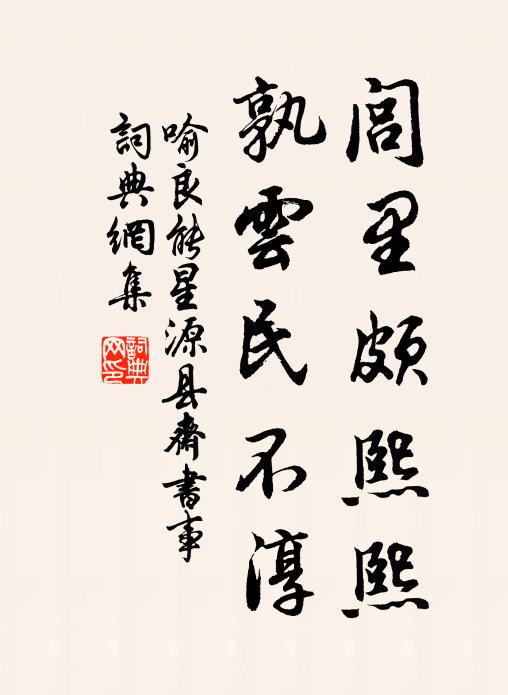 閭里頗熙熙
孰雲民不淳
喻良能星源县齋書事
詞典網集
詞典网印